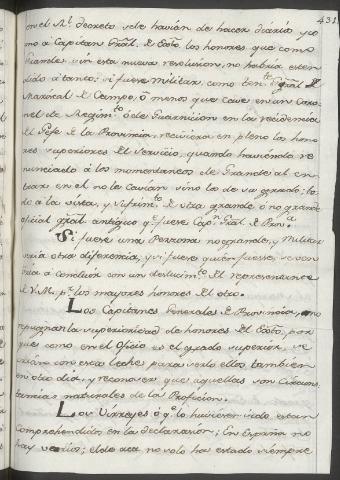 431
en el Rl. decreto se le havían de hacer diário, y co
mo á Capitan Gral. de Exto. los honores que como
Grande, sin esta nueva resolucion, no habría exten
dido á tanto: si fuese militar, como Ten.te Gral. de
Mariscal de Campo, ó menos que Cave en un Coro
nel de Regim.to de Guarnicion en la recidencia
del Gefe de la Provincia, reciviera en pleno los hono
res superiores del Servicio, quando haviendo re
nunciado á los momentaneos de Grande al en
trar en el no le cavian sino los de su grado: to
do á la vista, y sufrim.to de otro grande ó no grande
oficial Gral. antiguo q.e fuese Cap.n Gral. de Prov.a
Si fuese una Persona no grande, y Militar
sería otra diferencia, y si fuese quien fuese, se ven
dría á concluir con un deslucim.to del representante
de V. M. p.r los mayores honores del otro.
Los Capitanes Generales de Provincia, no
repugnan la superioridad de honores del Exto. por
que como en el Oficio es el grado superior, se
crían con esta leche para verlo ellos tambien
en otro dia, y reconocer que aquellas son Circuns
tancias naturales de la Profesion.
Los Virreyes ó q.e lo huvieren sido estan
comprehendidos en la declaracion; En España no
hay varios; el de aca no solo ha estado siempre